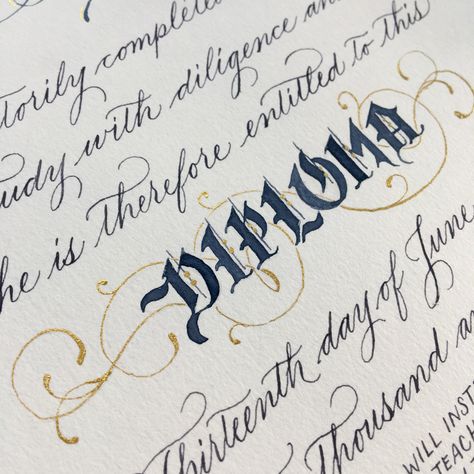 torily completed
udy with diligence an
he is therefore entitled to this
DIPLOMA
Thirteenth day of June
Thousand an
WILL INST
TEACH